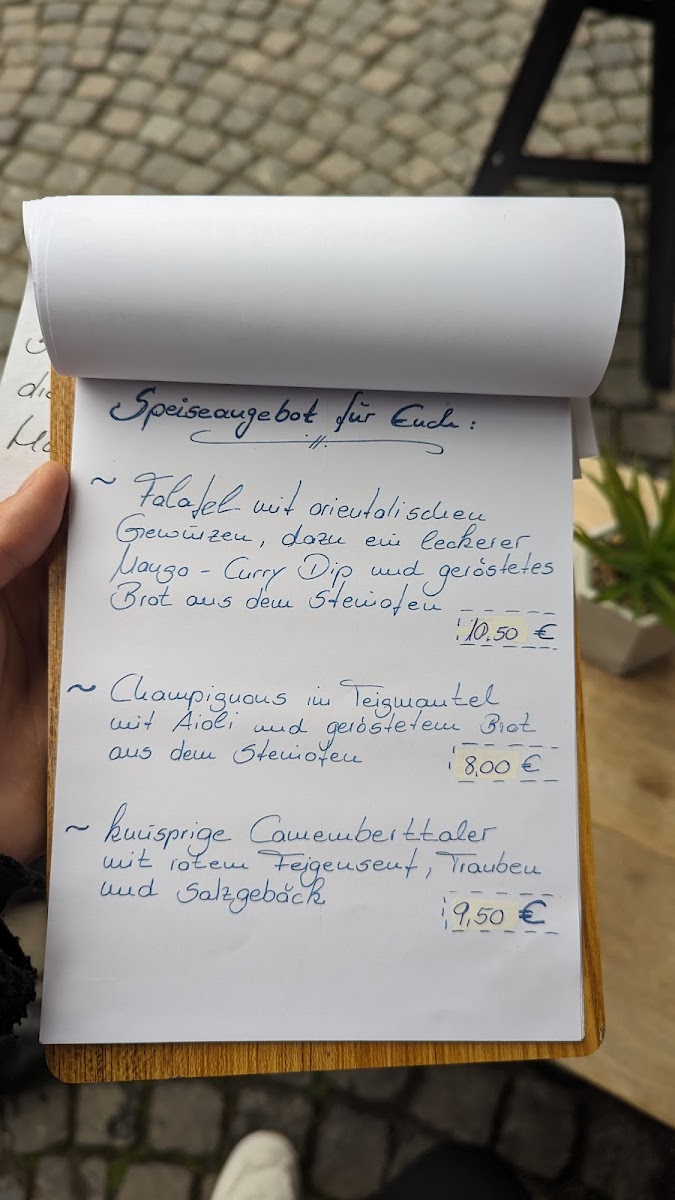 Speiseangebot für Euch:
~ Falafel mit orientalischen
Gewürzen, dazu ein leckerer
Mango - Curry Dip und geröstetes
Brot aus dem Steinofen
10,50 €
~ Champignons im Teigmantel
mit Aioli und geröstetem Brot
aus dem Steinofen
8,00 €
~ knusprige Camemberttaler
mit rotem Feigensenf, Trauben
und Salzgebäck
9,50 €